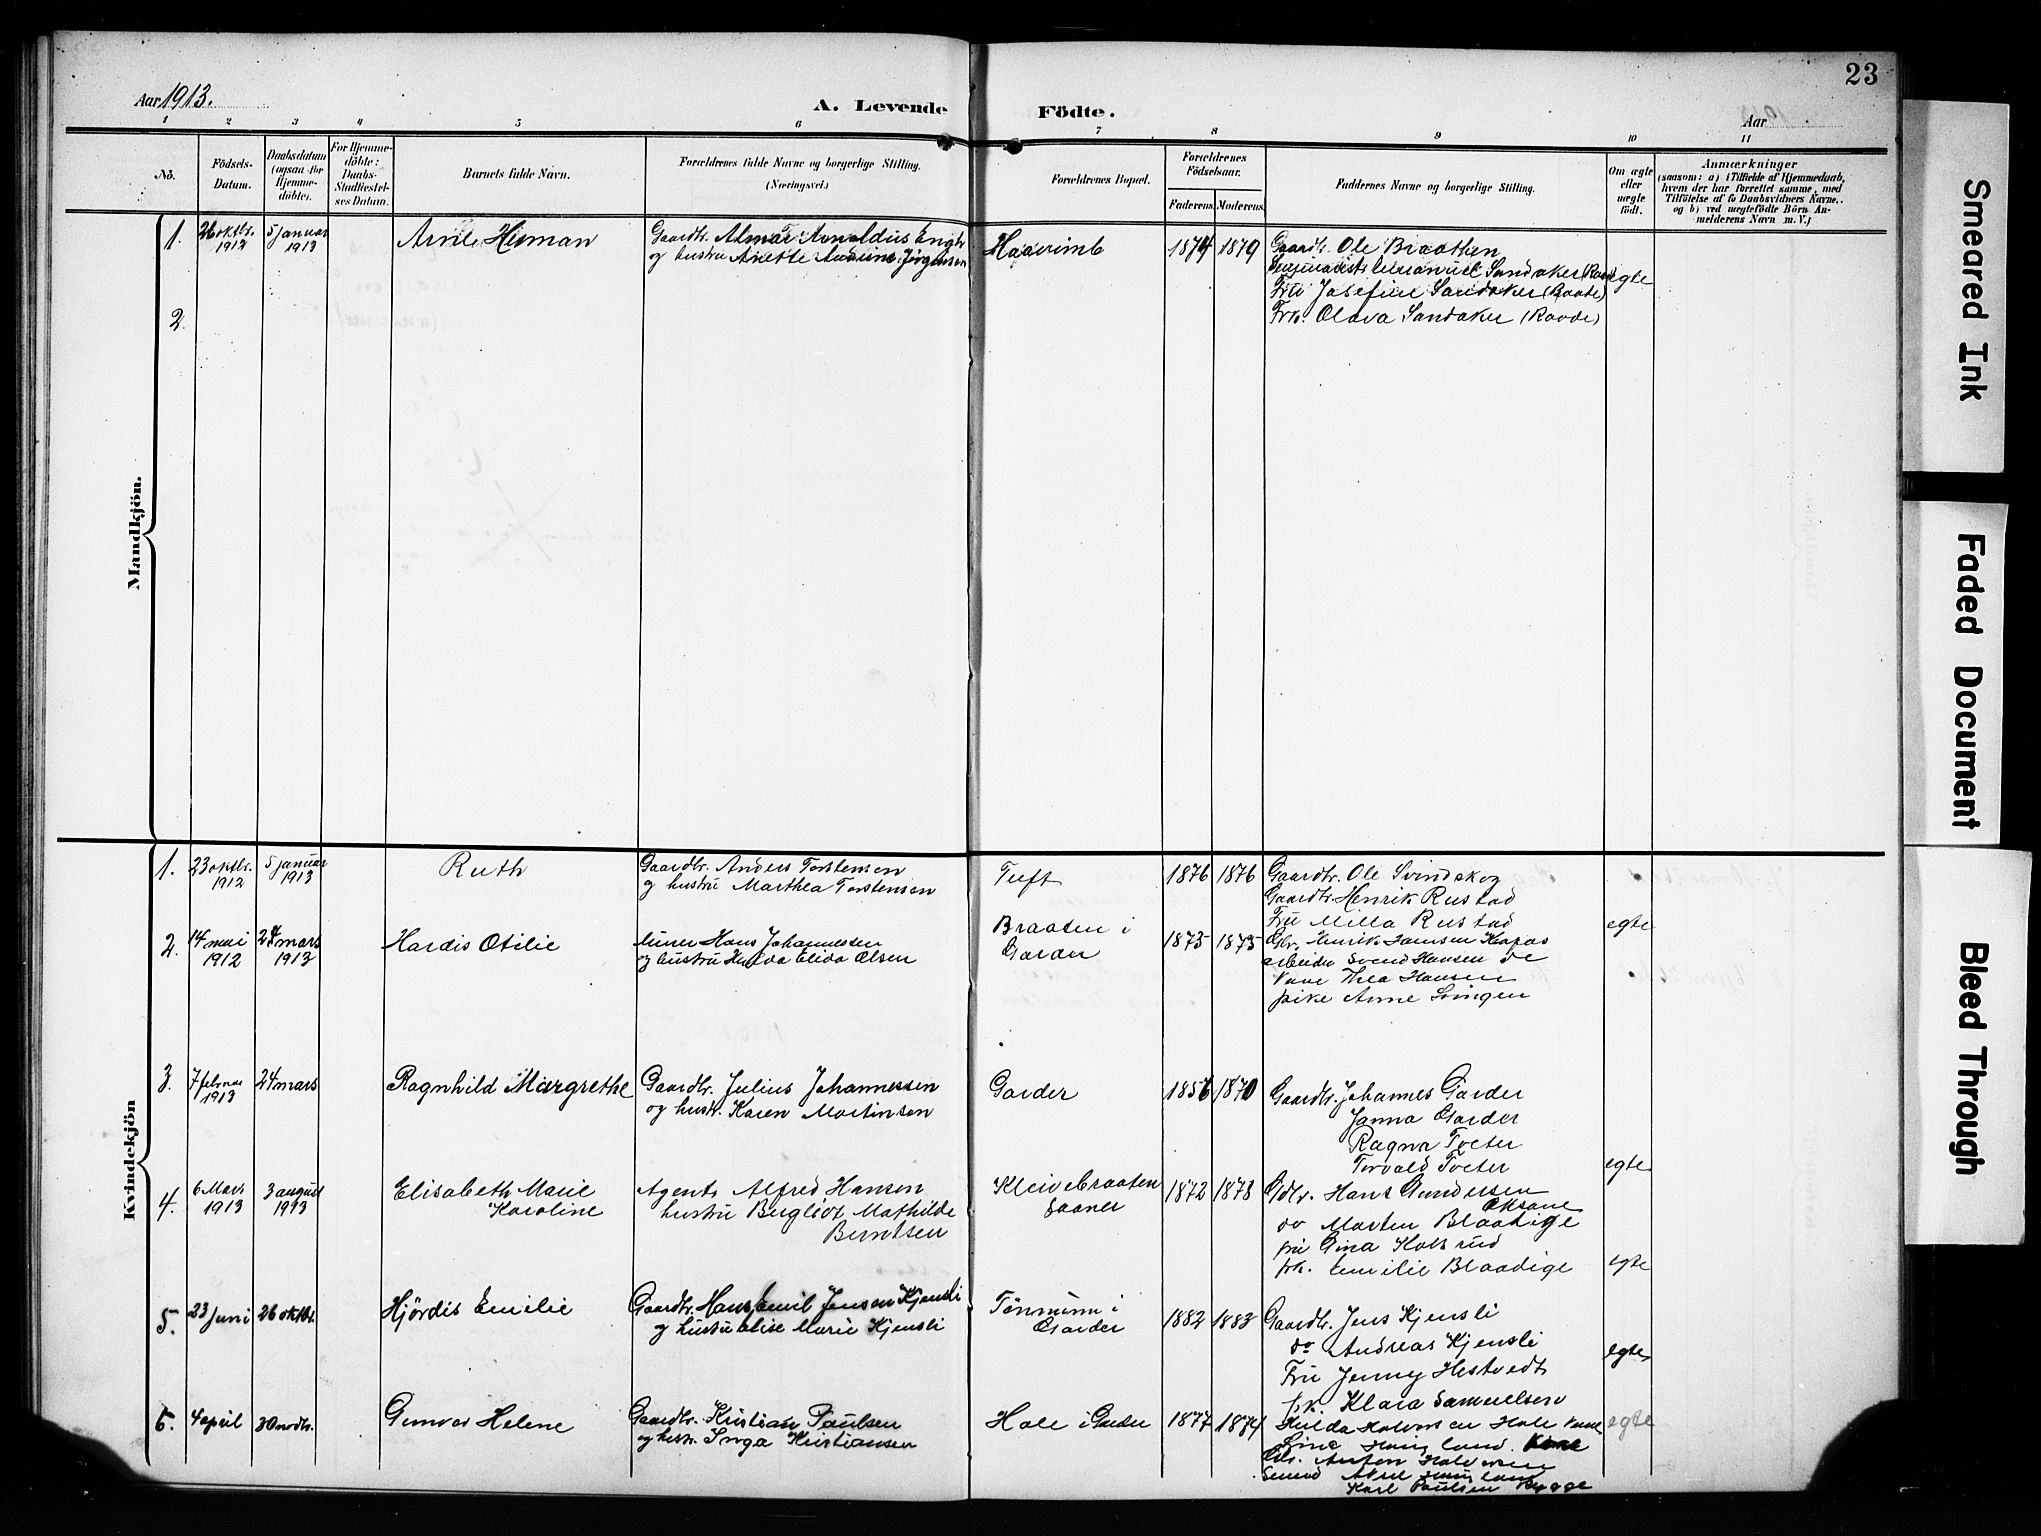 23
Aar 1913.
A. Levende Födte.
Aar
1 2 3 4 5 6 7 8 9 10 11
Nö.
Födsels-
Datum.
Daabsdatum
(ogsaa for
Hjemme-
döbte).
For Hjemme-
döbte:
Daabs-
Stadfæstel-
ses Datum.
Barnets fulde Navn.
Forældrenes fulde Navne og borgerlige Stilling.
(Næringsvei.)
Forældrenes Bopæl.
Forældrenes
Födselsaar.
Faderens. Moderens.
Faddernes Navne og borgerlige Stilling.
Om ægte
eller
uægte
födt.
Anmærkninger
(saasom: a) i Tilfælde af Hjemmedaab,
hvem der har forrettet samme, med
Tilföielse af to Daabsvidners Navne,
og b) ved uægtefödte Börn An-
melderens Navn m. V.)
Mandkjön.
1.
26 oktbr.
1912
5 januar
1913
Arvile Herman
Gaardbr. Almar Arnaldus Engh
og hustru Anette Jörgensen
Haavimb
1874 1879
Gaardbr. Ole Braathen
Emanuel Sandaker
Fru Josefine Sandaker (Raade)
Frk. Olava Sandaker (Raade)
egte
2.
Kvindekjön
1.
23 oktbr.
1912
5 januar
1913
Ruth
Gaardbr. Anders Torstensen
og hustru Marthea Torstensen
Tuft
1876 1876
Gaardbr. Ole Svindskog
Gaardbr. Henrik Rustad
Fru Milla Rustad
egte
2.
14 mai
1912
24 mars
1913
Hardis Otilie
Murer Hans Johannessen
og hustru Hulda Elida Olsen
Braaten i
Garder
1873 1875
Gbr. Henrik Hansen
arbeider Svend Hansen do
Thea Hansen
pike Anne Svingen
3.
7 februar
1913
24 mars
Ragnhild Margrethe
Gaardbr. Julius Johannessen
og hustr. Karen Martinsen
Garder
1856 1870
Gaardbr. Johannes Garder
Janna Garder
Ragna Tveter
Torvald Tveter
egte
4.
6 Mars
1913
3 august
1913
Elisabeth Marie
Karoline
Agent Alfred Hansen
hustru Bergliot Mathilde
Berntsen
Kleivebraaten
Saaner
1872 1878
Gdbr. Hans Gundersen
do Morten Blaadige
fru Gina
frk. Emilie Blaadige
egte
5.
23 juni
26 oktbr.
Hjördis Emilie
Gaardbr. Hans Emil Jensen Kjensli
og hustru Elise Marie Kjensli
i
Garder
1882 1883
Gaardbr. Jens Kjensli
do Andreas Kjensli
Fru Jenny Hestvedt
frk Klara Samuelsen
egte
6.
4 april
30 novbr.
Gunvor Helene
Gaardbr. Kristian Paulsen
og hustr. Inga Kristiansen
Hole i Garder
1877 1874
Hulda Halvorsen Hole
Gbr. Anton Halvorsen
Karl Paulsen Rygge
egte
Smeared Ink
Faded Document
Bleed Through